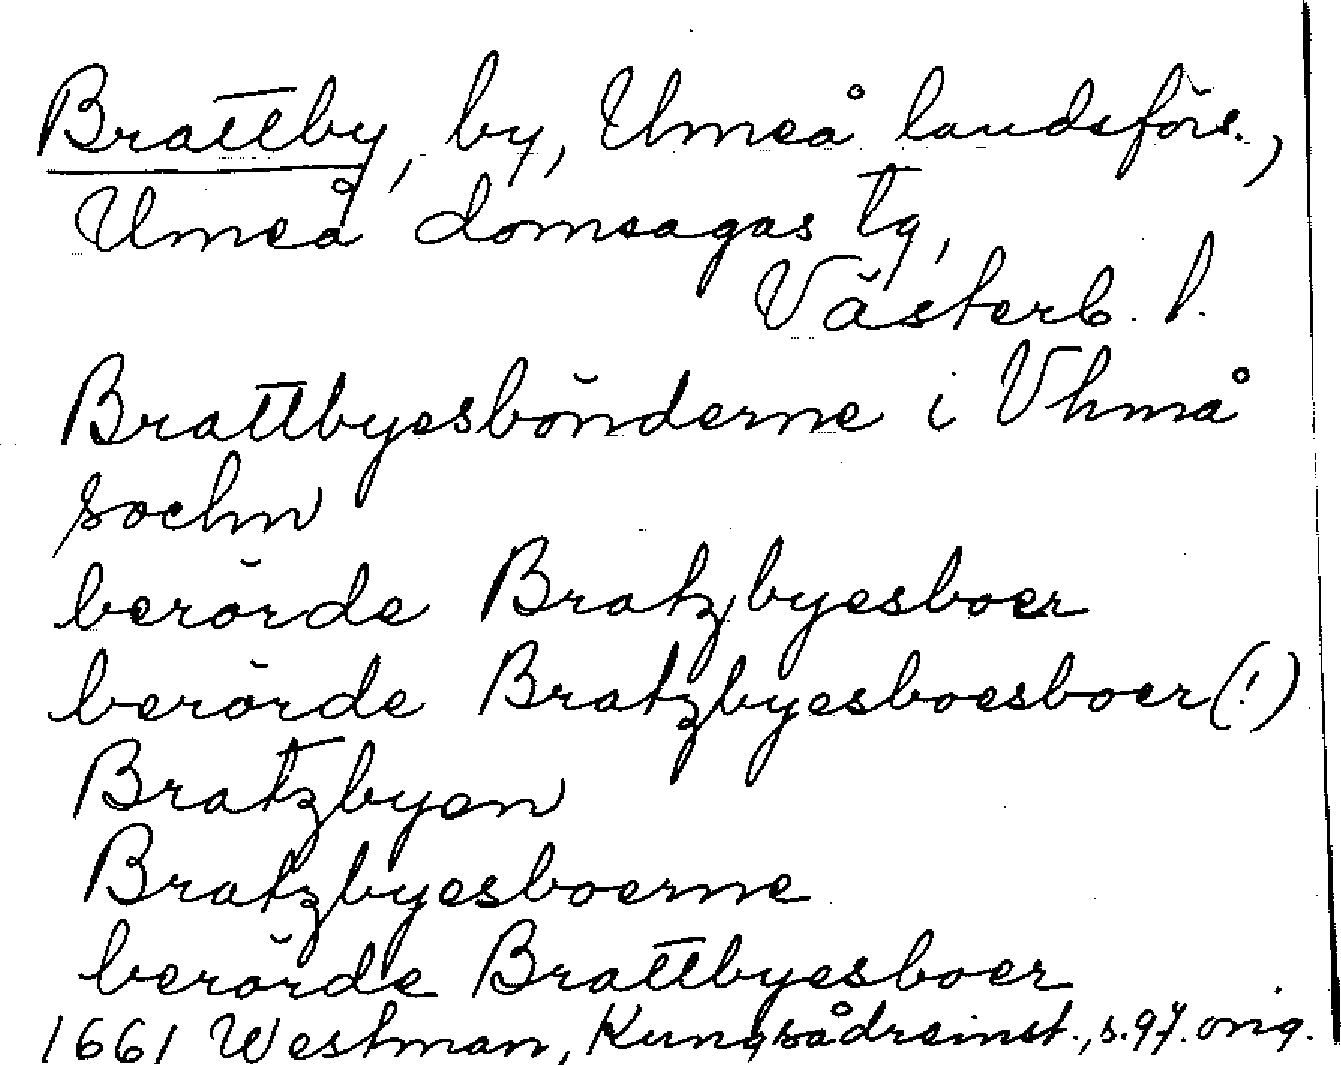 Brattby, by, Umeå landsförs.,
Umeå domsagas tg,
Västerb. l.
Brattbyesbönderne i Vhmå
sochn
berörde Bratzbyesboer
berörde Bratzbyesboesboer(!)
Bratzbyen
Bratzbyesboerne
berörde Brattbyesboer
1661 Westman, Kungsådreinst., s.97. orig.